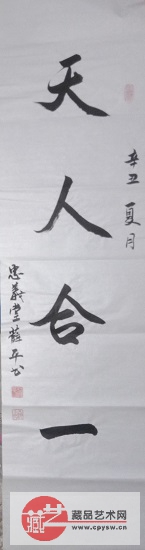 天人合一
辛丑夏月
忠義堂蘊平书
藏艺
藏品艺术网
www.cpysw.cn